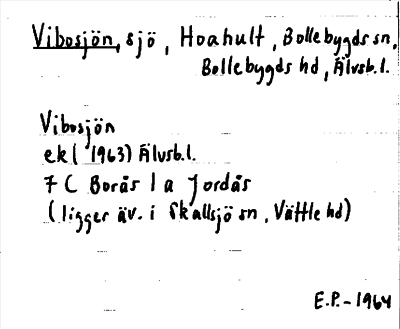 Vibosjön, sjö, Hoahult, Bollebygds sn,
Bollebygds hd, Älvsb.l.
Vibosjön
ek (1963) Älvsb.l.
7 C Borås 1 a Jordås
(ligger äv. i Skallsjö sn, Vättle hd)
E.P.-1964